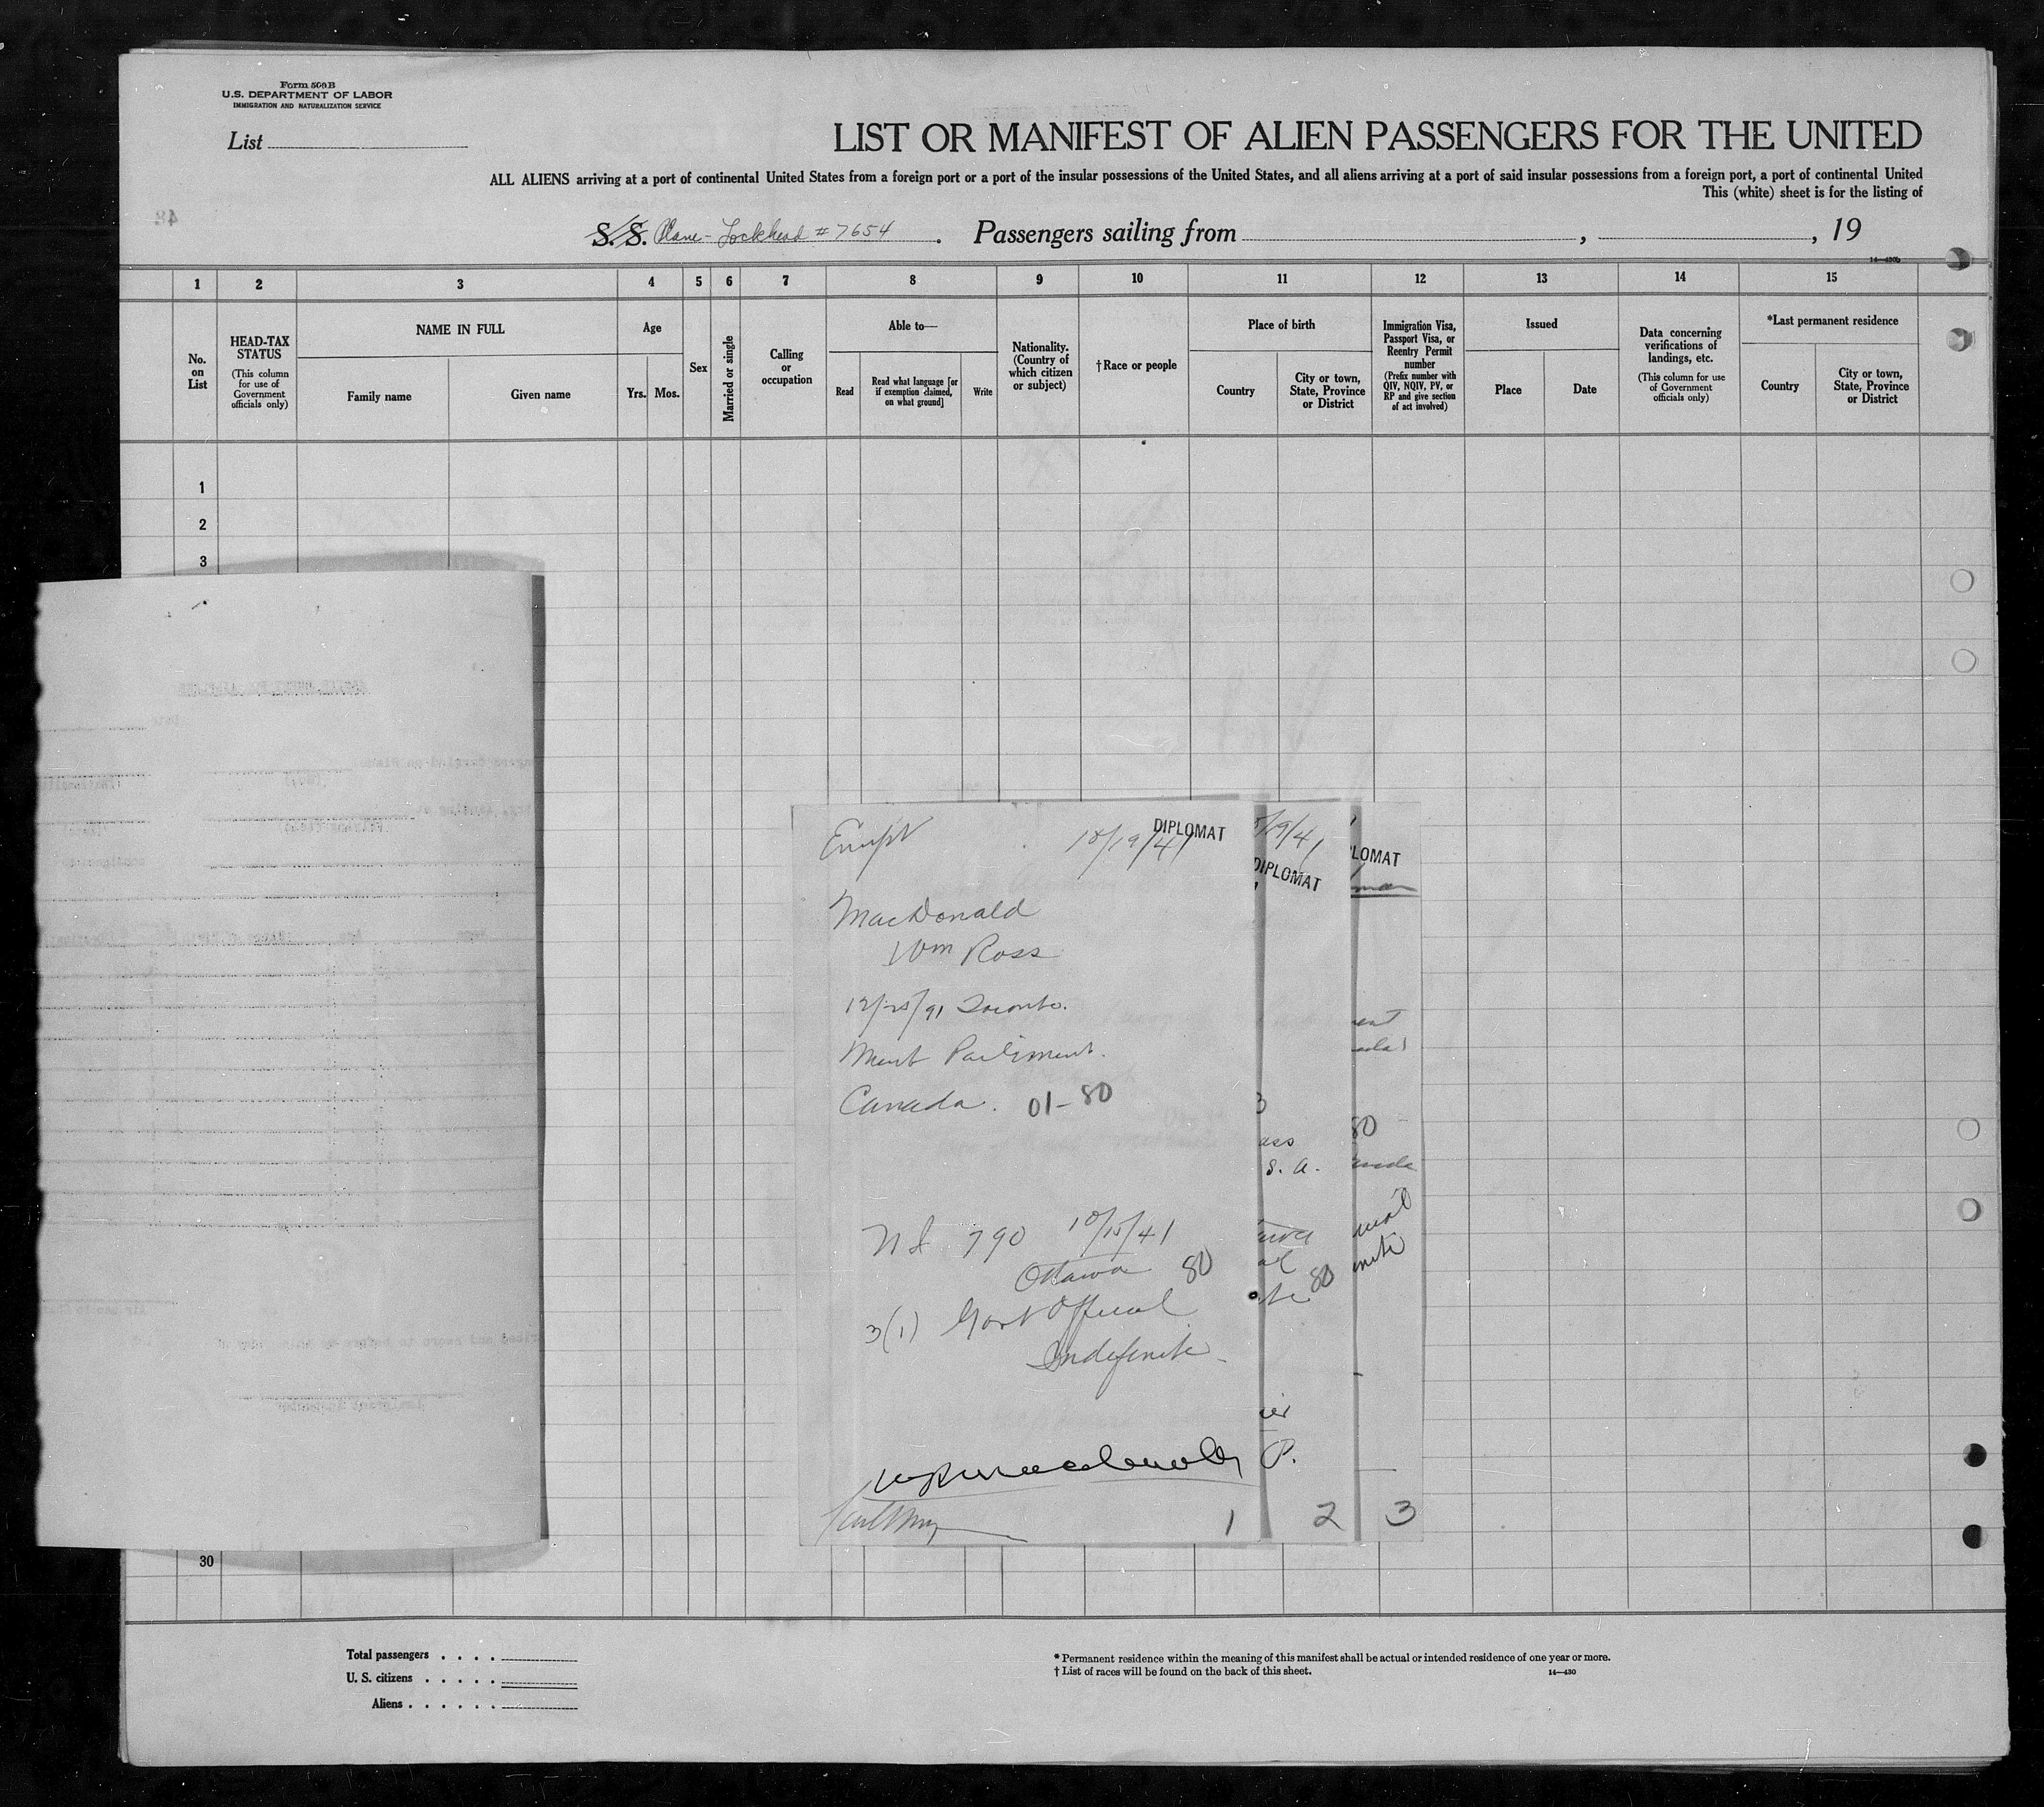 Form 500B
U.S. DEPARTMENT OF LABOR
IMMIGRATION AND NATURALIZATION SERVICE
List
LIST OR MANIFEST OF ALIEN PASSENGERS FOR THE UNITED
ALL ALIENS arriving at a port of continental United States from a foreign port or a port of the insular possessions of the United States, and all aliens arriving at a port of said insular possessions from a foreign port, a port of continental United
This (white) sheet is for the listing of
S.S. Plane - Lockhead # 7654 . Passengers sailing from , , 19
14—430b
1 2 3 4 5 6 7 8 9 10 11 12 13 14 15
No. on List
HEAD-TAX STATUS
(This column for use of Government officials only)
NAME IN FULL
Family name
Given name
Age
Yrs. Mos.
Sex
Married or single
Calling or occupation
Able to—
Read
Read what language [or if exemption claimed, on what ground]
Write
Nationality. (Country of which citizen or subject)
†Race or people
Place of birth
Country
City or town, State, Province or District
Immigration Visa, Passport Visa, or Reentry Permit number
(Prefix number with QIV, NQIV, PV, or RP and give section of act involved)
Issued
Place
Date
Data concerning verifications of landings, etc.
(This column for use of Government officials only)
*Last permanent residence
Country
City or town, State, Province or District
1
2
3
10/19/41
DIPLOMAT
/19/41
DIPLOMAT
LOMAT
MacDonald
Wm Ross
12/25/91 Toronto.
Parliment.
Canada. 01-80
80
S. A.
790 10/15/41
Ottawa 80
80
3(1) Govt Official
Indefinite
P.
1
2
3
30
Total passengers
U. S. citizens
Aliens
* Permanent residence within the meaning of this manifest shall be actual or intended residence of one year or more.
† List of races will be found on the back of this sheet.
14—430